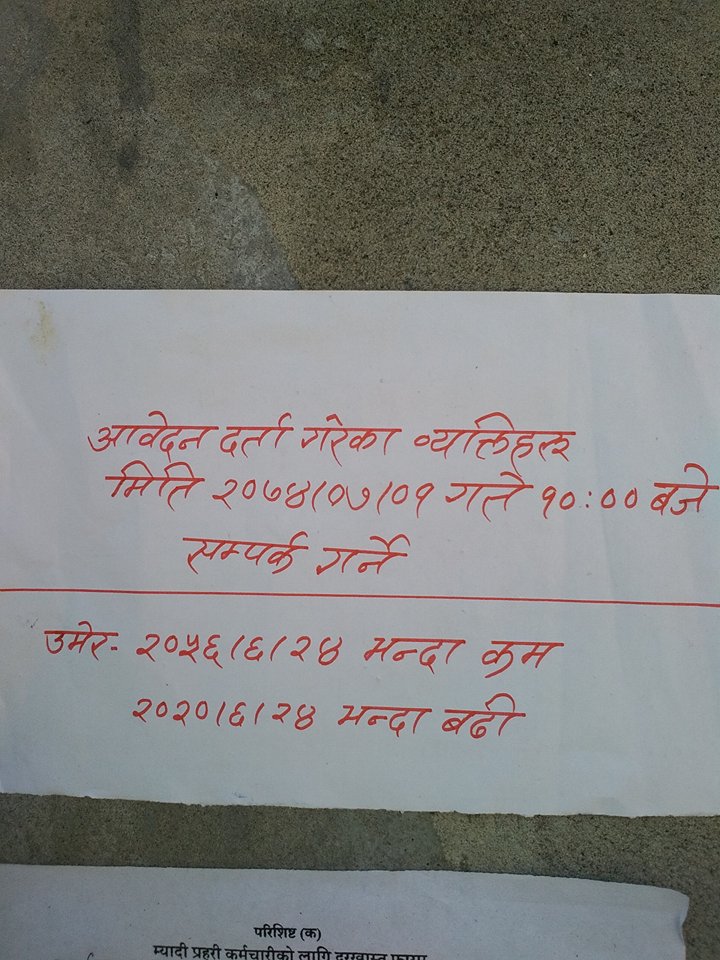 आवेदन दर्ता गरेका व्यक्तिहरू
मिति २०७४।०७।०१ गते १०:०० बजे
सम्पर्क गर्ने
उमेर- २०५६।६।२४ भन्दा कम
२०२०।६।२४ भन्दा बढी
परिशिष्ट (क)
म्यादी प्रहरी कर्मचारीको लागि दरखास्त फाराम